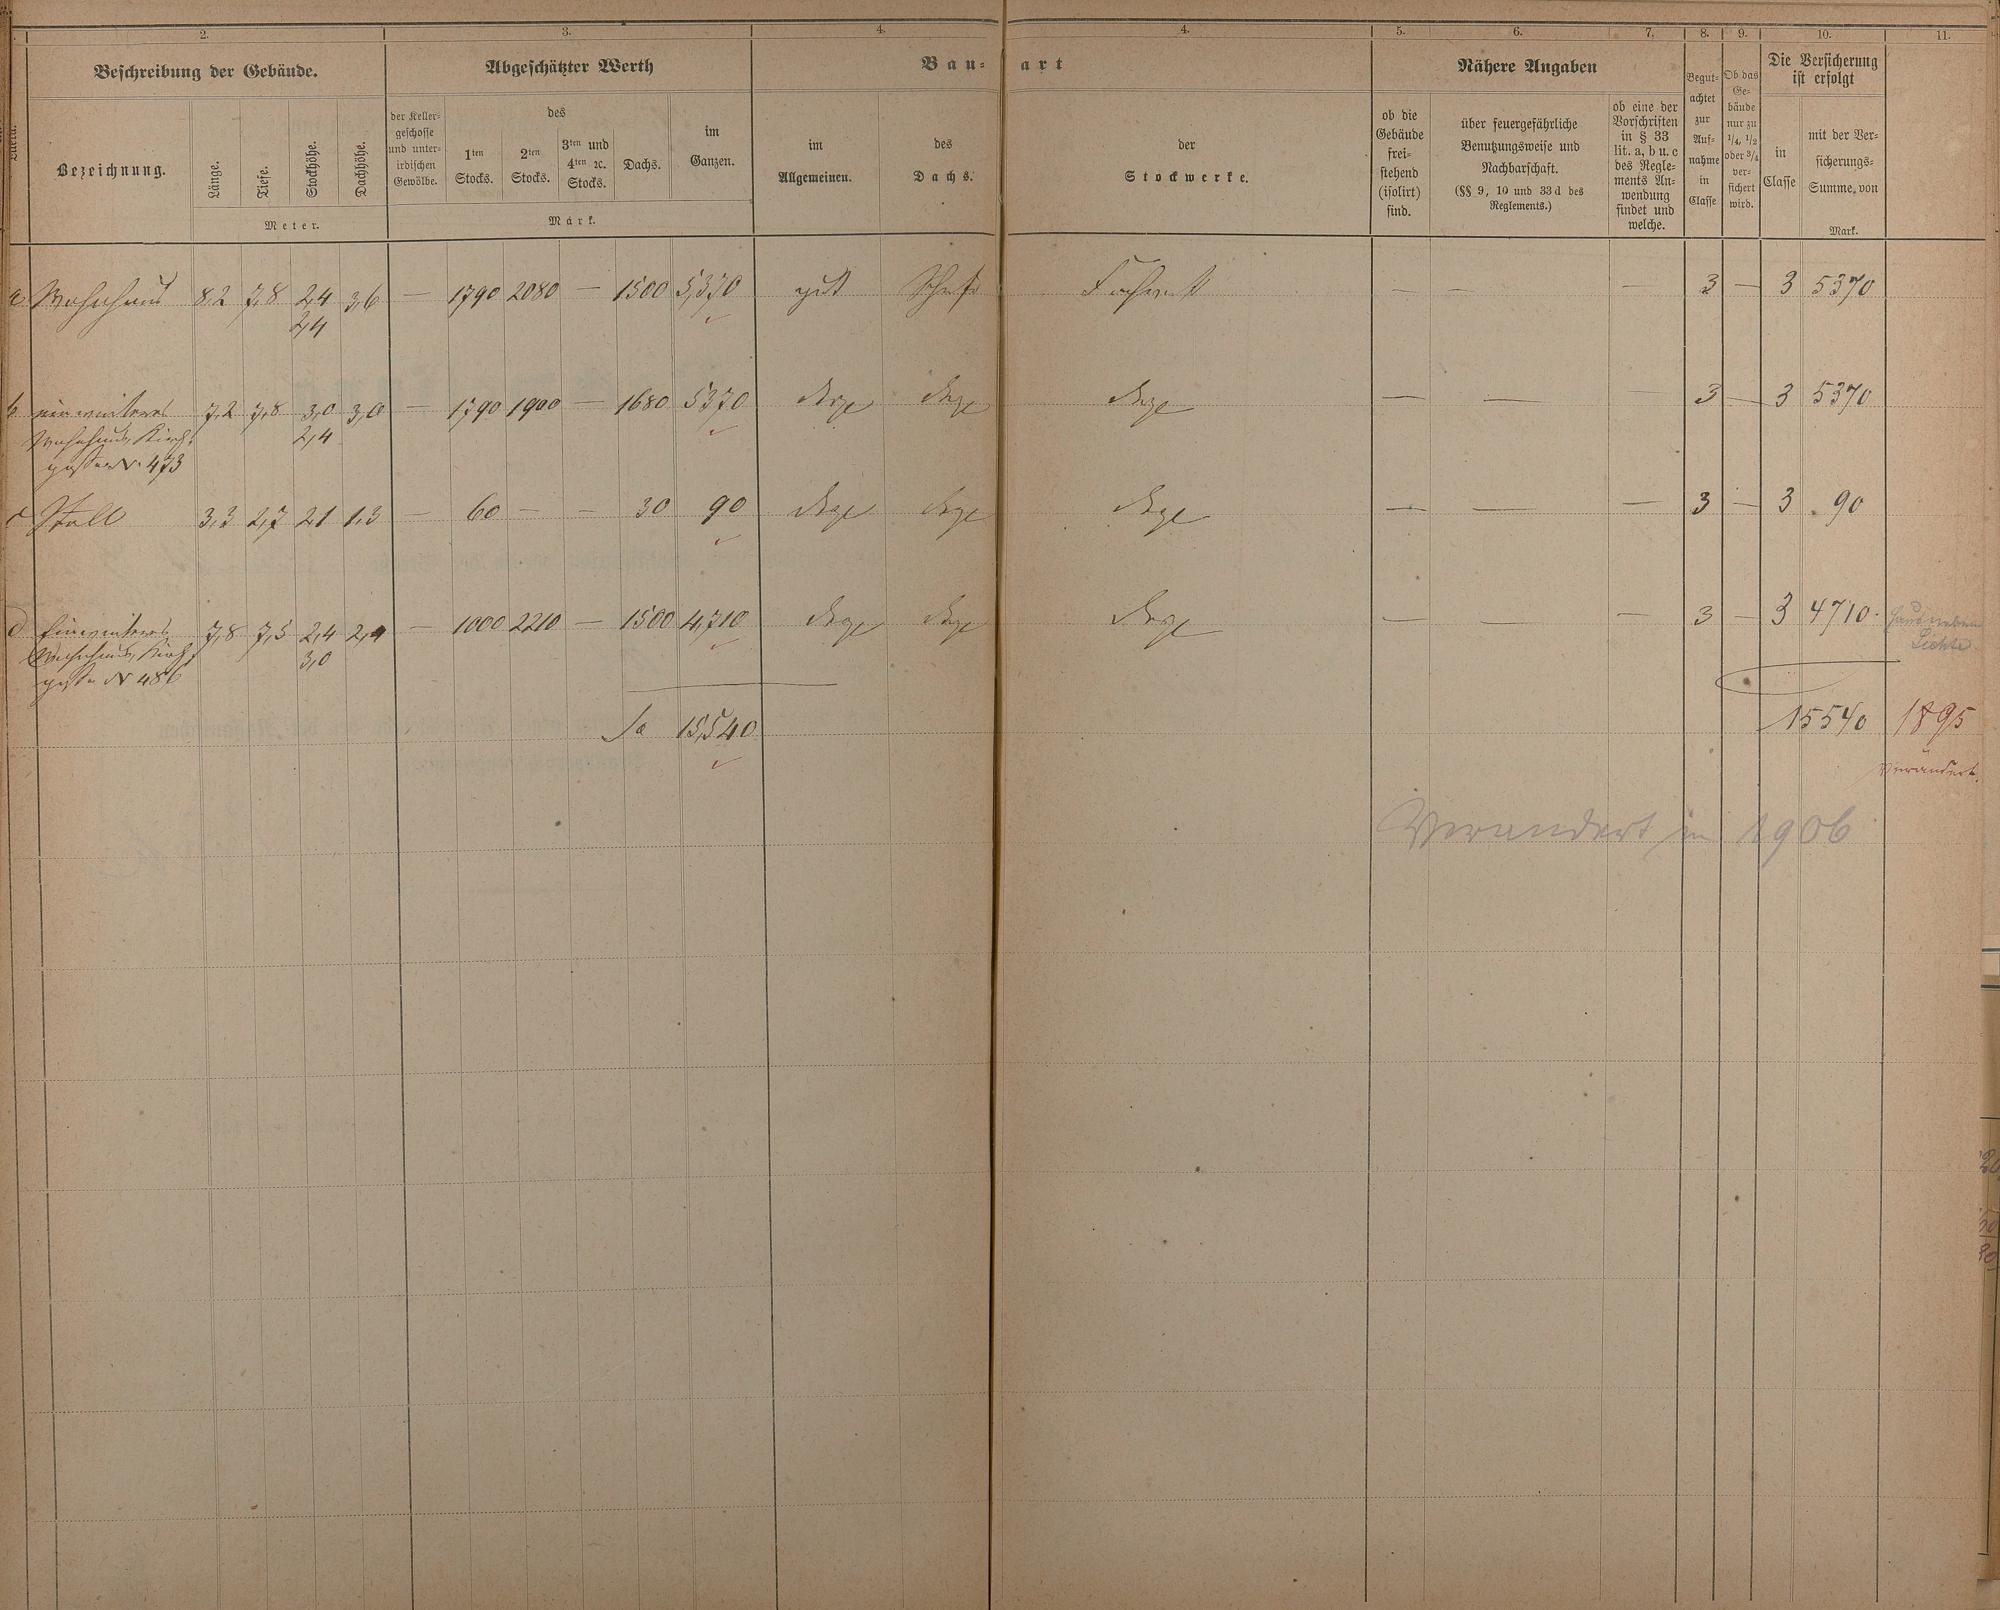 2.
3.
4.
4.
5.
6.
7.
8.
9.
10.
11.
Beschreibung der Gebäude.
Abgeschätzter Werth
Bau-
art
Nähere Angaben
Begut-
achtet
zur
Auf-
nahme
in
Classe
Ob das
Ge-
bäude
nur zu
1/4, 1/2
oder 3/4
ver-
sichert
wird.
Die Versicherung
ist erfolgt
Bezeichnung.
Länge.
Tiefe.
Stockhöhe.
Dachhöhe.
Meter.
der Keller-
geschosse
und unter-
irdischen
Gewölbe.
des
1ten
Stocks.
2ten
Stocks.
3ten und
4ten ꝛc.
Stocks.
Dachs.
im
Ganzen.
Mark.
im
Allgemeinen.
des
Dachs.
der
Stockwerke.
ob die
Gebäude
frei-
stehend
(isolirt)
sind.
über feuergefährliche
Benutzungsweise und
Nachbarschaft.
(§§ 9, 10 und 33 d des
Reglements.)
ob eine der
Vorschriften
in § 33
lit. a, b u. c
des Regle-
ments An-
wendung
findet und
welche.
in
Classe
mit der Ver-
sicherungs-
Summe von
Mark.
a Wohnhaus 8,2 7,8 2,4 3,6 — 1790 2080 — 1500 5,370 gut Schiefer Fachwerk — — — 3 — 3 5370
2,4
b ein weiteres 7,2 7,8 3,0 3,0 — 1790 1900 — 1680 5370 desgl desgl desgl — — — 3 — 3 5370
Wohnhaus, Kirch- 2,4
gasse N. 473
c Stall 3,3 2,7 2,1 1,3 — 60 — — 30 90 desgl desgl desgl — — — 3 — 3 90
d Ein weiteres 7,8 7,5 2,4 2,4 — 1000 2210 — 1500 4,710 desgl desgl desgl — — — 3 — 3 4710
Wohnhaus, Kirch- 3,0
gasse N 486
Sa 15,540 15540 1895
Verändert.
Verändert in 1906